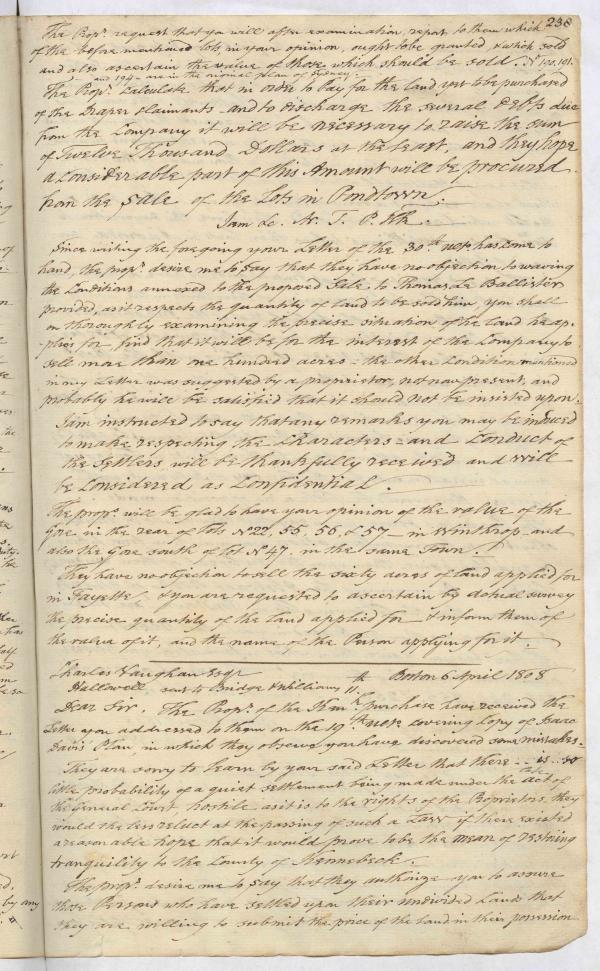 238
The Propʳ. request that you will after examination, report to them which
of the before mentioned lots, in your opinion, ought to be granted, & which sold
and also ascertain the value of those which should be sold. Nº 100. 101.
and 194 - are in the original plan of Sydney.
The Propʳ. calculate that in order to pay for the land yet to be purchased
of the Draper Claimants - and to discharge the several Debts due
from the Company it will be necessary to raise the sum
of Twelve Thousand Dollars at the least, and they hope
a considerable part of this Amount will be procured
from the Sale of the Lots in Pondtown.
I am &c. Mr. T. P. KK.
Since writing the foregoing your Letter of the 30th ulto. has come to
hand, the propʳ. desire me to say that they have no objection to waving
the Conditions annexed to the proposed Sale to Thomas Le Ballister
provided, as it respects the quantity of land to be sold him, you shall
on thoroughly examining the precise situation of the land he ap-
-plies for, find that it will be for the interest of the Company to
sell more than one hundred acres - the other Condition mentioned
in my Letter was suggested by a proprietor, not now present, and
probably he will be satisfied that it should not be insisted upon.
I am instructed to say that any remarks you may be induced
to make respecting the Characters - and Conduct of
the Settlers will be thankfully received and will
be Considered as Confidential.
The propʳ. will be glad to have your opinion of the value of the
Gore in the rear of lots Nº 22, 55, 56, & 57 - in Winthrop and
also the Gore south of lot Nº 47, in the same Town.
They have no objection to sell the sixty acres of land applied for
in Fayette, & you are requested to ascertain by actual survey
the precise quantity of the land applied for - & inform them of
the value of it, and the name of the Person applying for it.
Charles Vaughan Esqr
Boston 6 April 1808
Hallowell sent to Bridge & Williams 11th
Dear Sir. The Propʳ. of the Kenk. purchase have received the
Letter you addressed to them on the 19th ulto. covering Copy of Isaac
Davis' Plan, in which they observe you have discovered some mistakes.
They are sorry to learn by your said Letter that there - is - so
little probability of a quiet settlement being made under the late act of
the General Court, hostile as it is to the rights of the Proprietors, they
would the less reluct at the passing of such a Law if there existed
a reasonable hope that it would prove to be the mean of restoring
tranquility to the County of Kennebeck.
The propʳ. desire me to say that they authorize you to assure
those Persons who have settled upon their undivided Land, that
they are willing to submit the price of the land in their possession